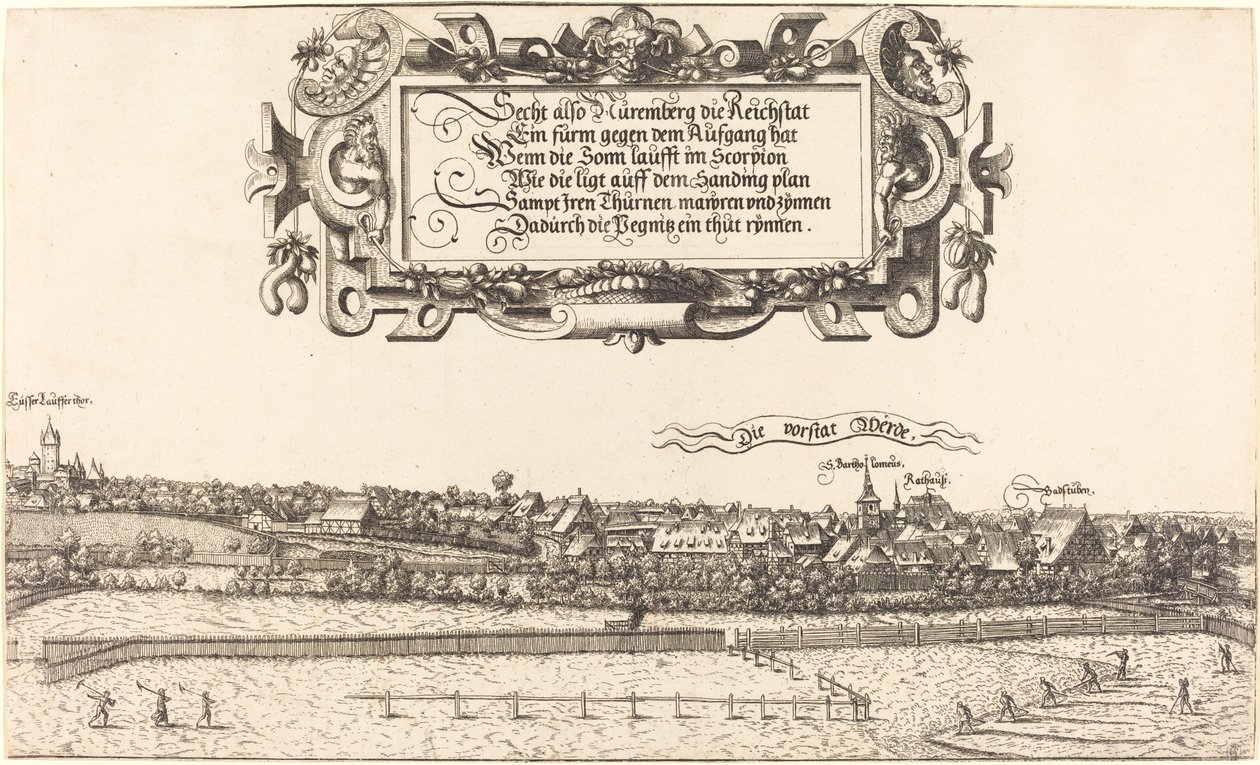 Secht also Nuremberg die Reichstat
Ein furm gegen dem Aufgang hat
Wenn die Sonn laufft im Scorpion
Wie die ligt auff dem Sanding plan
Sampt Iren Thürnen mawren vnd zÿnnen
Dadurch die Pegnitz ein thut rÿnnen.
Eüsser Lauffer thor.
Die vorstat Werde.
S. Bartholomeus.
Rathauß.
Badstuben.